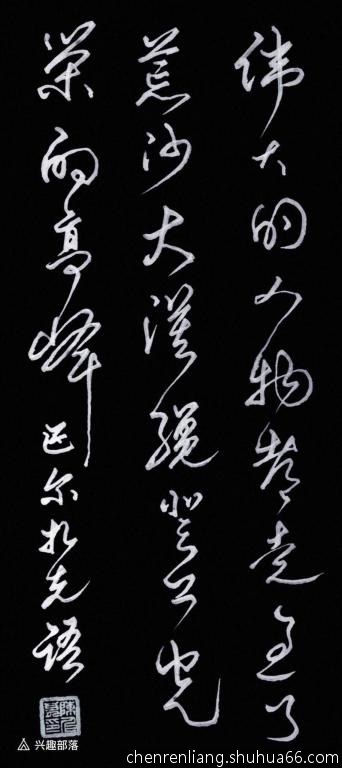 伟大的人物都走过了
荒沙大漠纔登上光
荣的高峰
巴尔扎克语
兴趣部落
chenrenliang.shuhua66.com